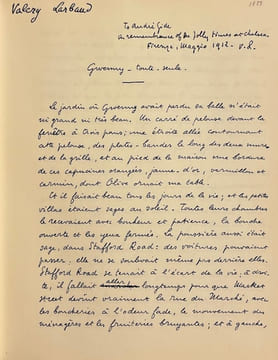 Valery Larbaud
To André Gide
in remembrance of the jolly hours at Chelsea.
Firenze, Maggio 1912. V.L.
Gwenny - toute - seule.
Le jardin où Gwenny avait perdu sa balle n'était
ni grand ni très beau. Un carré de pelouse devant la
fenêtre à trois pans; une étroite allée contournant
cette pelouse, des plates-bandes le long des deux murs
et de la grille, et au pied de la maison une bordure
de ces capucines orangées, jaune d'or, vermillon et
carmin, dont Olive ornait ma table.
Et il faisait beau tous les jours de la vie, et les petites
villas étaient sages au soleil. Toutes leurs chambres
le recevaient avec bonheur et patience, la bouche
ouverte et les yeux fermés. La poussière aussi était
sage, dans Stafford Road: des voitures pouvaient
passer, elle ne se soulevait même pas derrière elles.
Stafford Road se tenait à l'écart de la vie; à droi-
te, il fallait aller longtemps pour que Market
street devînt vraiment la rue du Marché, avec
les boucheries à l'odeur fade, le mouvement des
ménagères et les fruiteries bruyantes; et à gauche,